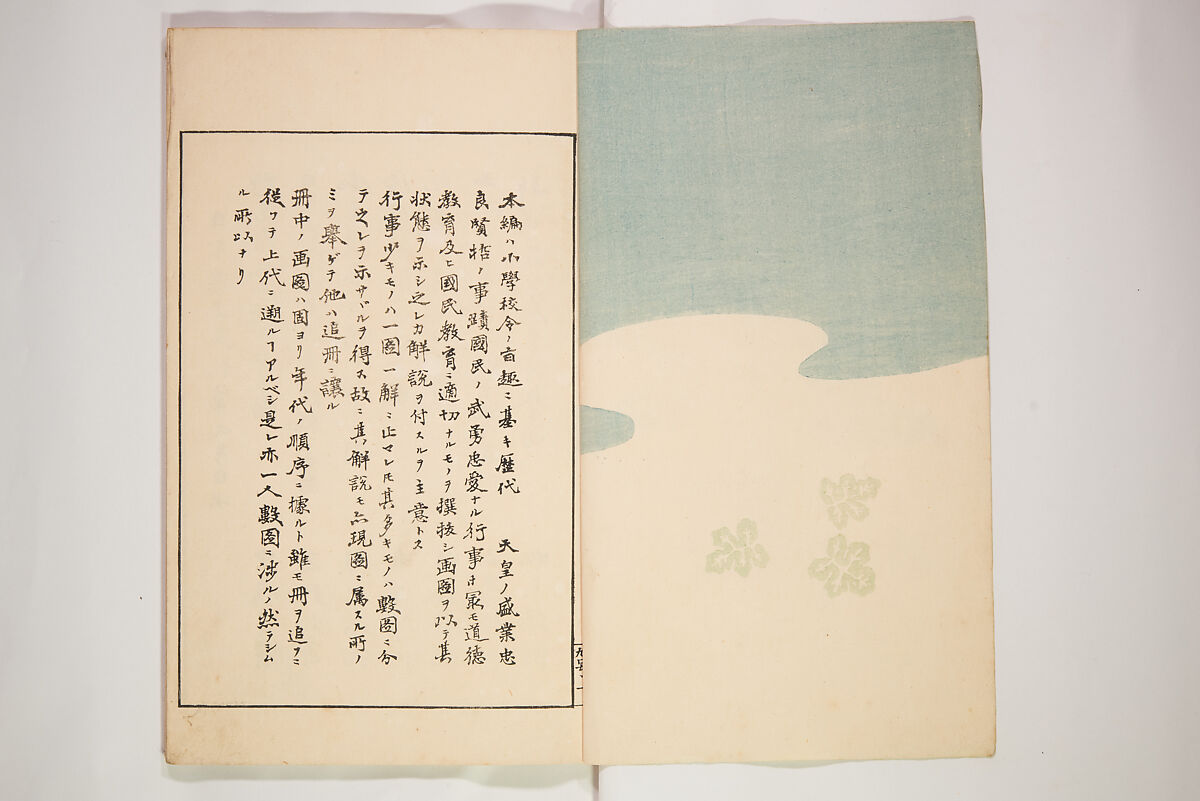 本編ハ小學校令ノ旨趣ニ基キ歴代　天皇ノ盛業忠
良賢哲ノ事蹟國民ノ武勇忠愛ナル行事ホ冣モ道徳
教育及ヒ國民教育ニ適切ナルモノヲ撰拔シ画圖ヲ以テ其
状態ヲ示シ之レカ解説ヲ付スルヲ主意トス
行事少キモノハ一圖一解ニ止マレ𪜈其多キモノハ數圖ニ分
テ之レヲ示サヾルヲ得ス故ニ其解説モ亦現圖ニ属スル所ノ
ミヲ舉ゲテ他ハ追冊ニ讓ル
冊中ノ画圖ハ固ヨリ年代ノ順序ニ據ルト雖モ冊ヲ追フニ
從ツテ上代ニ遡ルヿアルベシ是レ亦一人數圖ニ渉ルノ然ラシム
ル所以ナリ